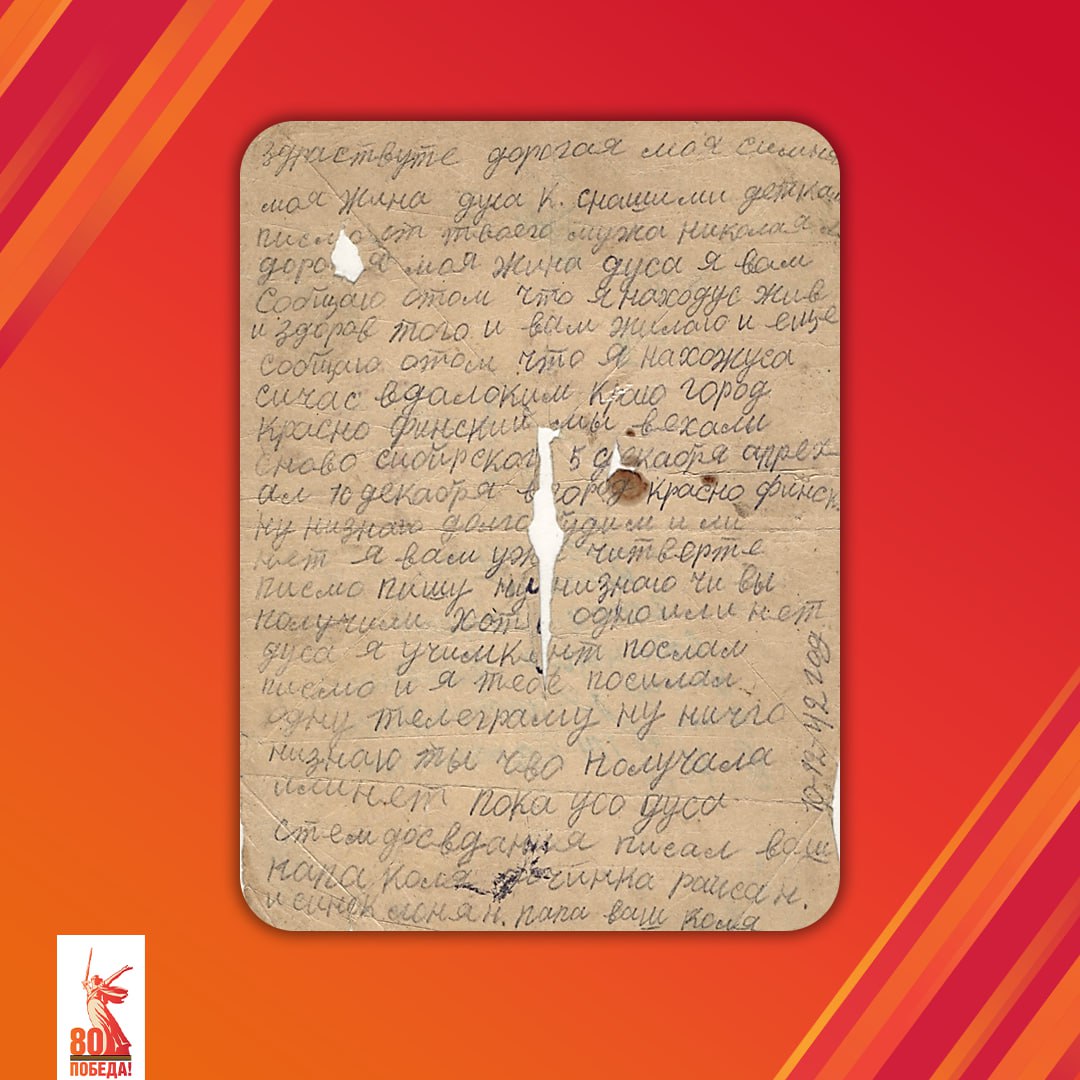 здраствуте дорогая моя симня
моя жина дуса К. снашими деткам
писмо от твоего мужа николая
дорогая моя жина дуса я вам
сообщаю отом что я находус жив
и здоров того и вам жилаю и еще
сообщаю отом что я нахожуса
сичас вдалоким краю город
красно финский мы вехали
сново сибирского 5 декабря апреех
ал 10 декабря в город красно финск
ну низнаю долго будим и ли
нет я вам уже читверте
писмо пишу ну низнаю чи вы
получили хоть одно или нет
дуса я учимкент послал
писмо и я тебе посилал
одну телеграму ну ничго
низнаю ты чво получала
илинет пока усо дуса
стем досвдания писал ваш
папа коля дочинка раиса н.
и синок лоня н. папа ваш коля
10-12-42 год
80
ПОБЕДА!